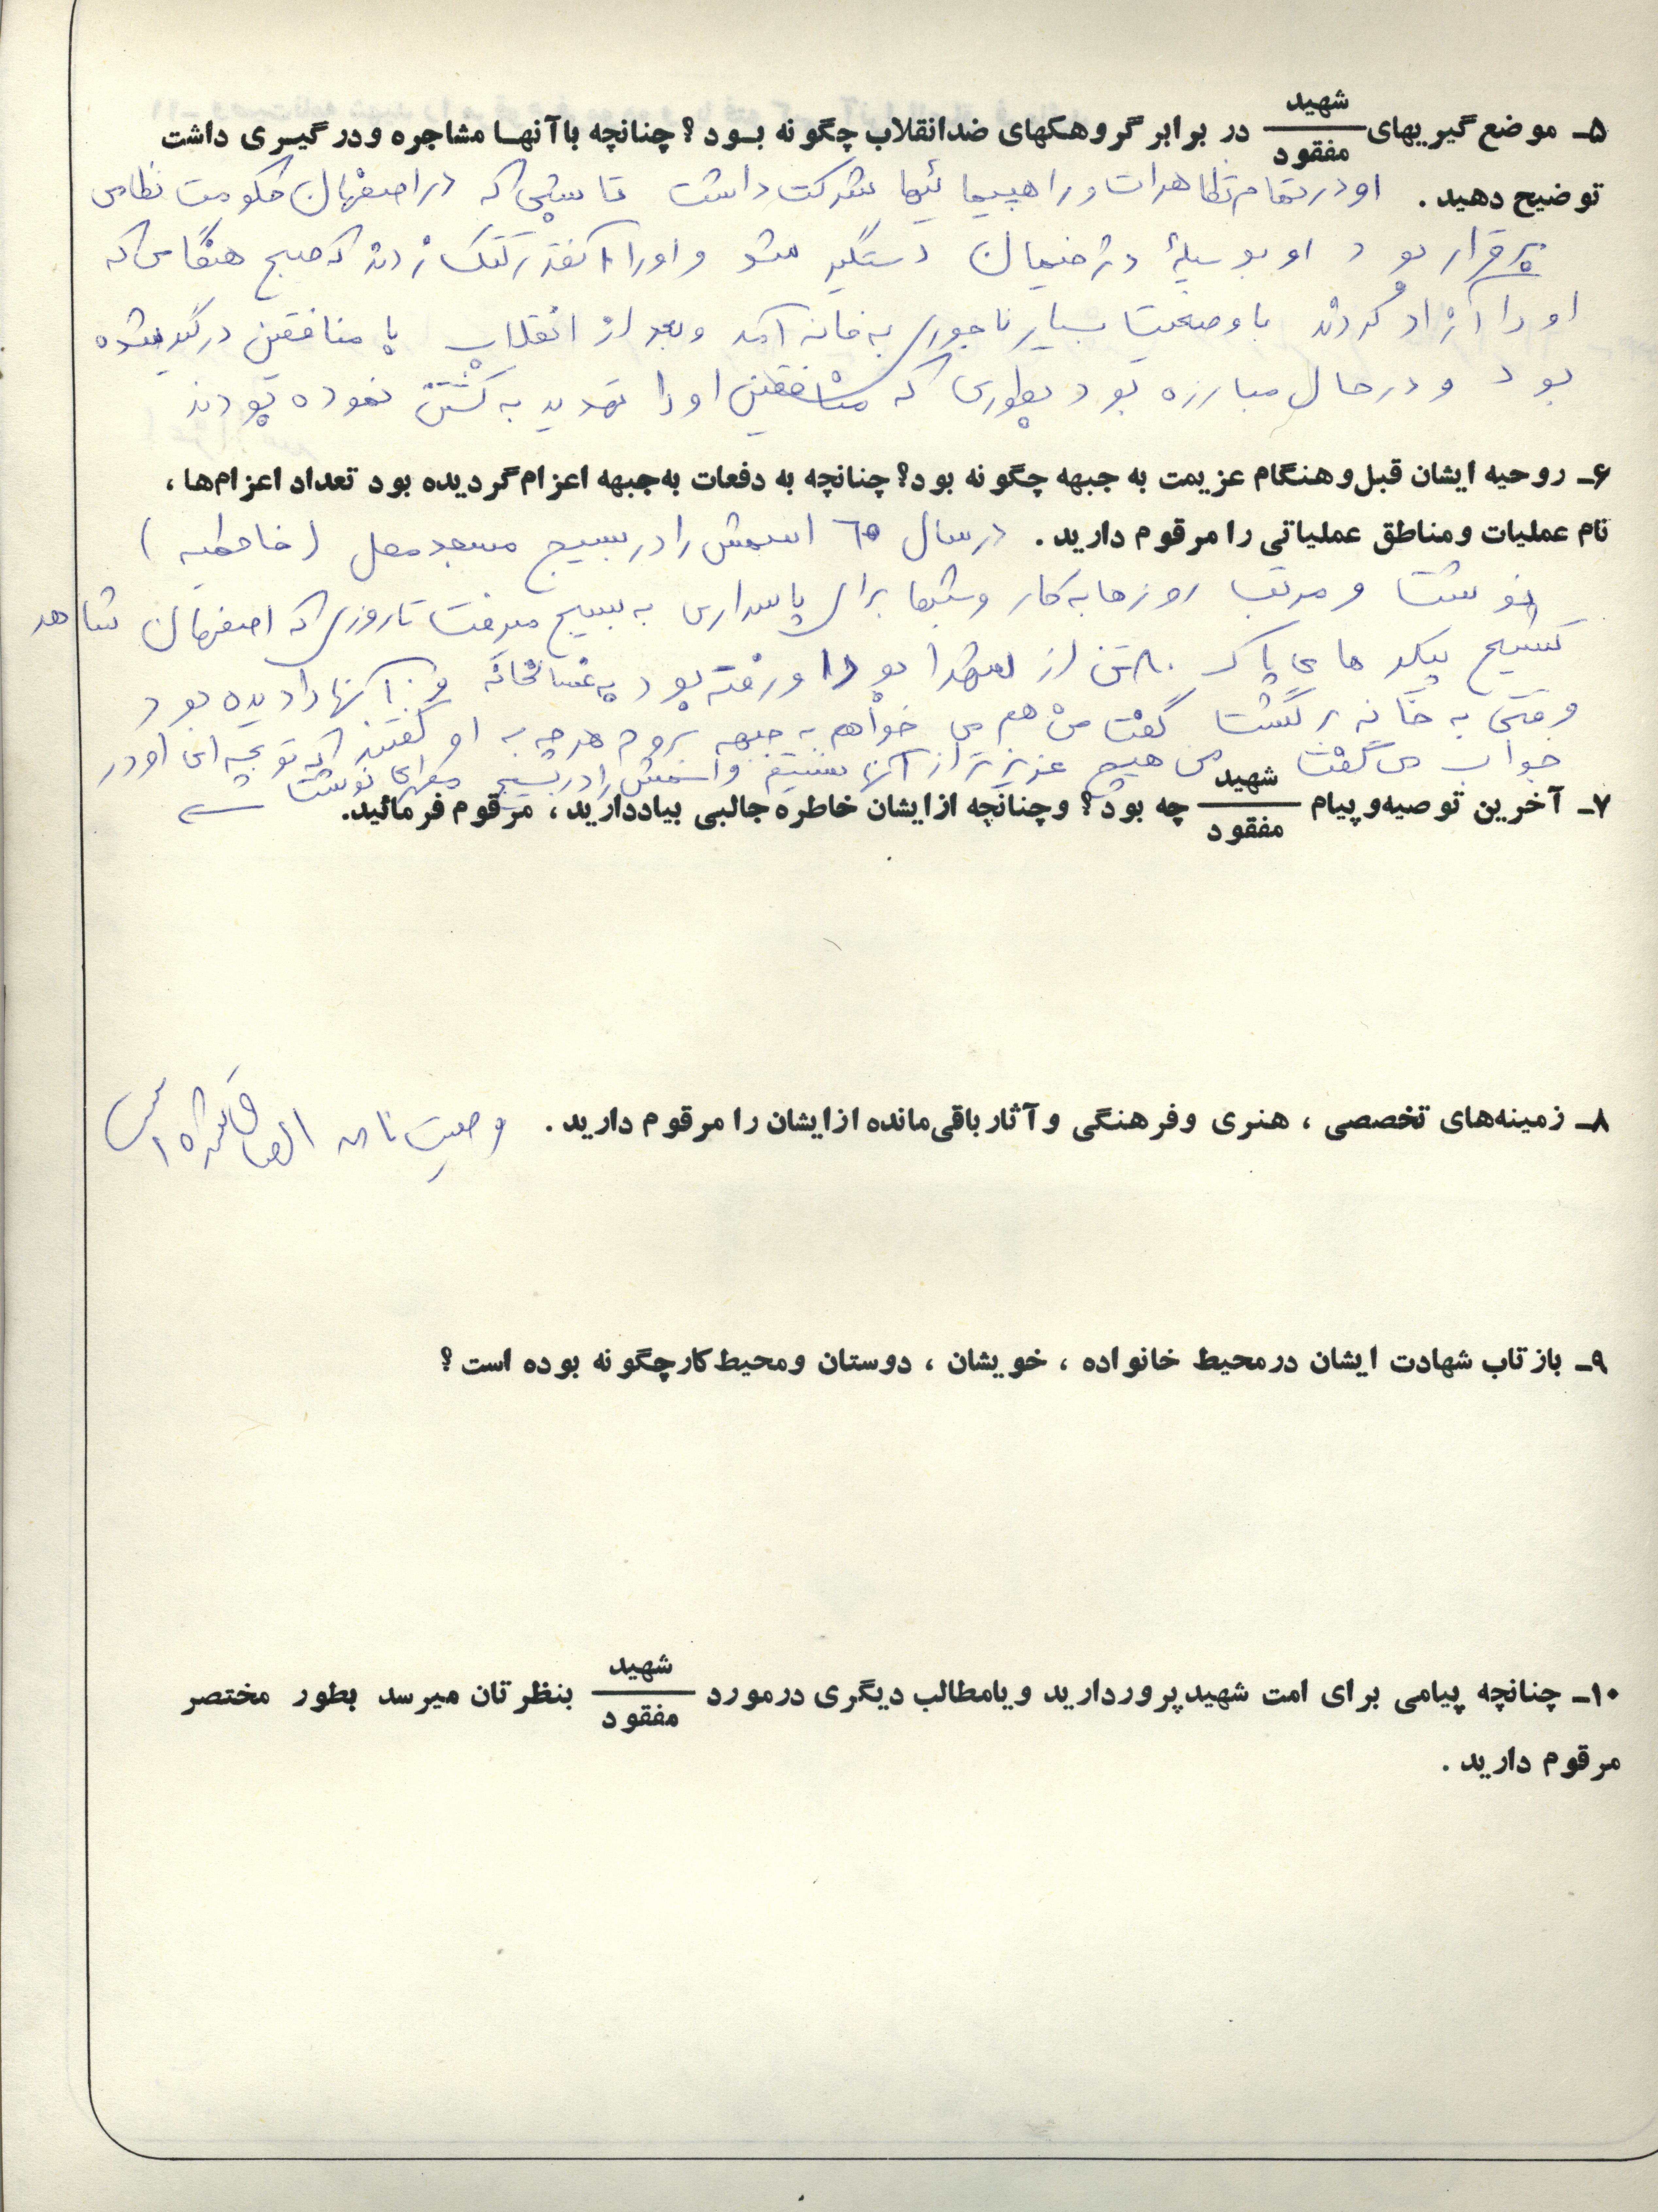 ۵ـ موضع‌گیریهای شهید/مفقود در برابر گروهکهای ضدانقلاب چگونه بود؟ چنانچه باآنها مشاجره ودرگیری داشت
توضیح دهید. او در تمام تظاهرات و راهپیمائیها شرکت داشت تا شبی که در اصفهان حکومت نظامی
برقرار بود او بوسیلهٔ دژخیمان دستگیر میشو و اورا آنقدر کتک زدند که صبح هنگامی که
او را آزاد کردند با وضعیت بسیار ناجوری به خانه آمد و بعد از انقلاب با منافقین درگیر شده
بود و در حال مبارزه بود بطوری که منافقین او را تهدید به کشتن نموده بودند
۶ـ روحیه ایشان قبل‌وهنگام عزیمت به جبهه چگونه بود؟ چنانچه به دفعات به‌جبهه اعزام‌گردیده بود تعداد اعزام‌ها،
نام عملیات ومناطق عملیاتی را مرقوم دارید. در سال ٦٥ اسمش را در بسیج مسجد محل (فاطمیه)
نوشت و مرتب روزها به کار و شبها برای پاسداری به بسیج میرفت تا روزی که اصفهان شاهد
تشییع پیکر های پاک تن از شهدا بود او رفته بود به غسالخانه و آنها را دیده بود
وقتی به خانه برگشت گفت من هم می خواهم به جبهه بروم هر چه به او گفتند که تو بچه ای او در
جواب می گفت من هیچ عزیزتر از آنها نیستم و اسمش را در بسیج نوشت
۷ـ آخرین توصیه‌وپیام شهید/مفقود چه بود؟ وچنانچه ازایشان خاطره جالبی بیاددارید، مرقوم فرمائید.
۸ـ زمینه‌های تخصصی، هنری وفرهنگی وآثارباقی‌مانده ازایشان را مرقوم دارید. وصیت نامه
۹ـ بازتاب شهادت ایشان درمحیط خانواده، خویشان، دوستان ومحیط‌کارچگونه بوده است؟
۱۰ـ چنانچه پیامی برای امت شهیدپروردارید ویامطالب دیگری درمورد شهید/مفقود بنظرتان میرسد بطور مختصر
مرقوم دارید.